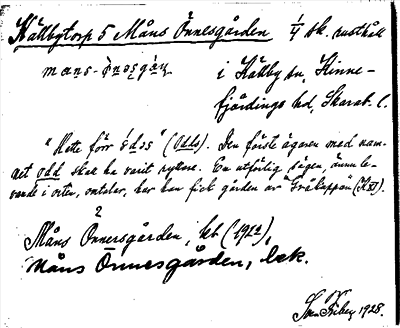 Källbytorp 5 Måns Önnesgården 1/4 sk. rusthåll
måns-önesgå̀ɳ i Källby sn, Kinne-
fjärdings hd, Skarab. l.
"Hette förr ódos" (Odds). Den förste ägaren med nam-
net odd skal ha varit ryttare. En utförlig sägen, ännu le-
vande i orten, omtalar, hur han fick gården av "Gråkappan" (K XI).
2
Måns Önnersgården, kt (1912),
Måns Önnesgården, bek.
Sven Friberg 1928.